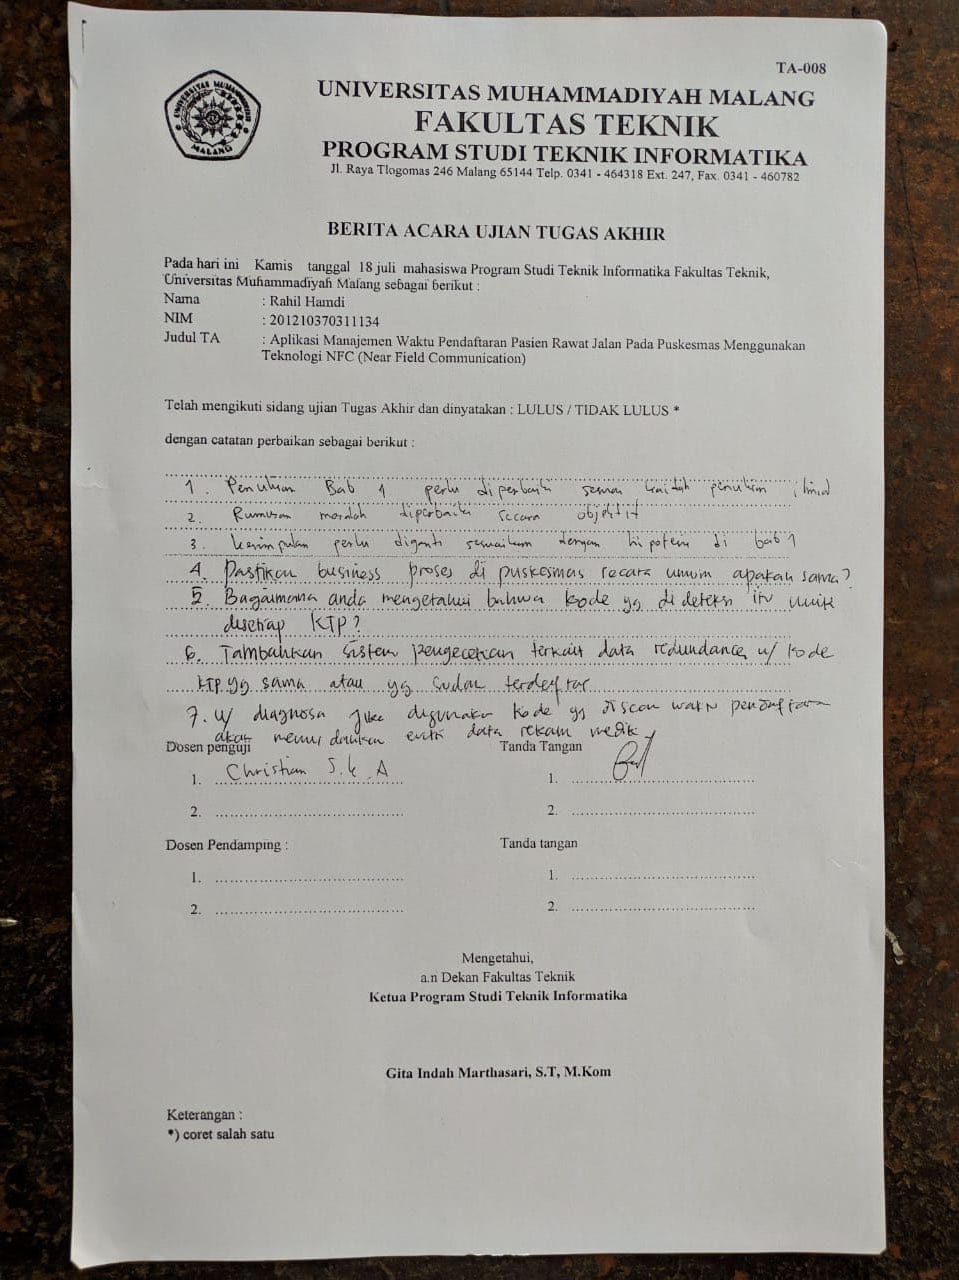 TA-008
UNIVERSITAS MUHAMMADIYAH MALANG
MALANG
UNIVERSITAS MUHAMMADIYAH MALANG
FAKULTAS TEKNIK
PROGRAM STUDI TEKNIK INFORMATIKA
Jl. Raya Tlogomas 246 Malang 65144 Telp. 0341 - 464318 Ext. 247, Fax. 0341 - 460782
BERITA ACARA UJIAN TUGAS AKHIR
Pada hari ini Kamis tanggal 18 juli mahasiswa Program Studi Teknik Informatika Fakultas Teknik,
Universitas Muhammadiyah Malang sebagai berikut :
Nama : Rahil Hamdi
NIM : 201210370311134
Judul TA : Aplikasi Manajemen Waktu Pendaftaran Pasien Rawat Jalan Pada Puskesmas Menggunakan
Teknologi NFC (Near Field Communication)
Telah mengikuti sidang ujian Tugas Akhir dan dinyatakan : LULUS / TIDAK LULUS *
dengan catatan perbaikan sebagai berikut :
1. Penulisan Bab 1 perlu diperbaiki sesuai kaidah penulisan ilmiah
2. Rumusan masalah diperbaiki secara objektif
3. kesimpulan perlu diganti sesuaikan dengan hipotesa di bab 1
4. Pastikan business proses di puskesmas secara umum apakah sama?
5. Bagaimana anda mengetahui bahwa kode yg di deteksi itu unik
disetiap KTP?
6. Tambahkan sistem pengecekan terkait data redundance u/ kode
KTP yg sama atau yg sudah terdaftar
7. u/ diagnosa jika digunakan kode yg discan waktu pendaftaran
akan data rekam medik
Dosen penguji Tanda Tangan
1. Christian S.k.A 1.
2. 2.
Dosen Pendamping : Tanda tangan
1. 1.
2. 2.
Mengetahui,
a.n Dekan Fakultas Teknik
Ketua Program Studi Teknik Informatika
Gita Indah Marthasari, S.T, M.Kom
Keterangan :
*) coret salah satu